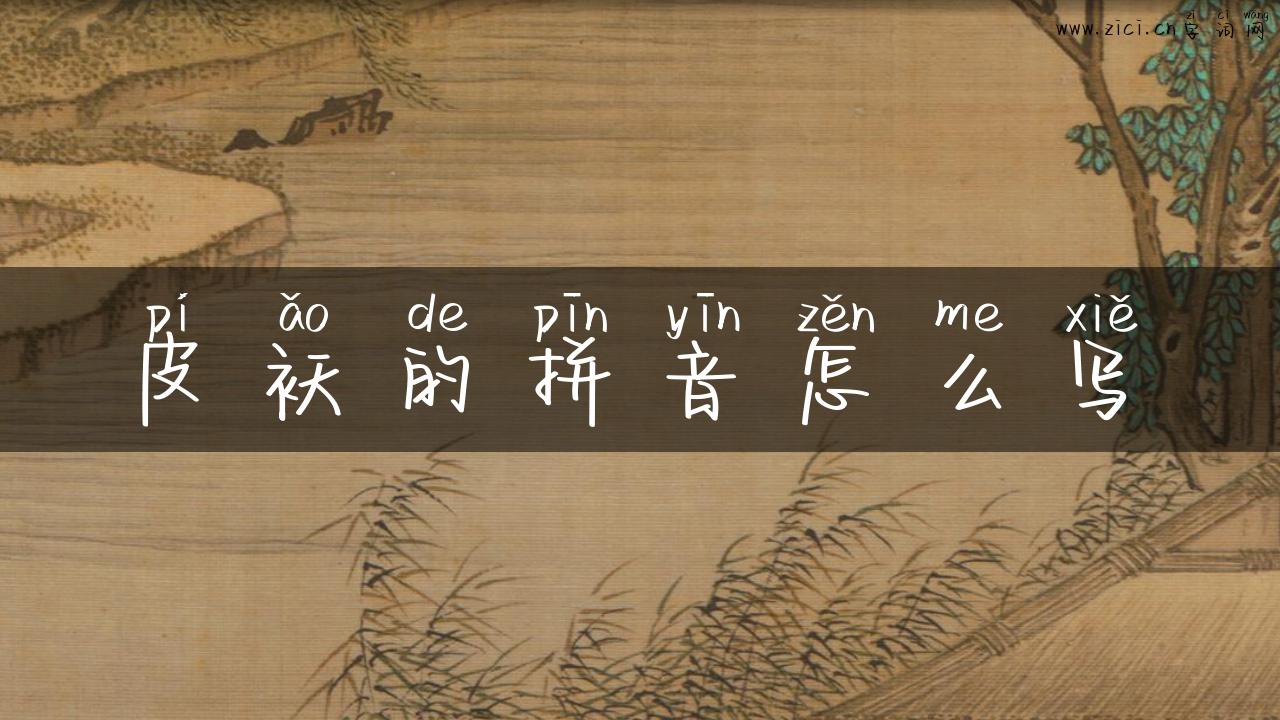 zì cí wǎng
www.zici.cn字词网
pí ǎo de pīn yīn zěn me xiě
皮袄的拼音怎么写